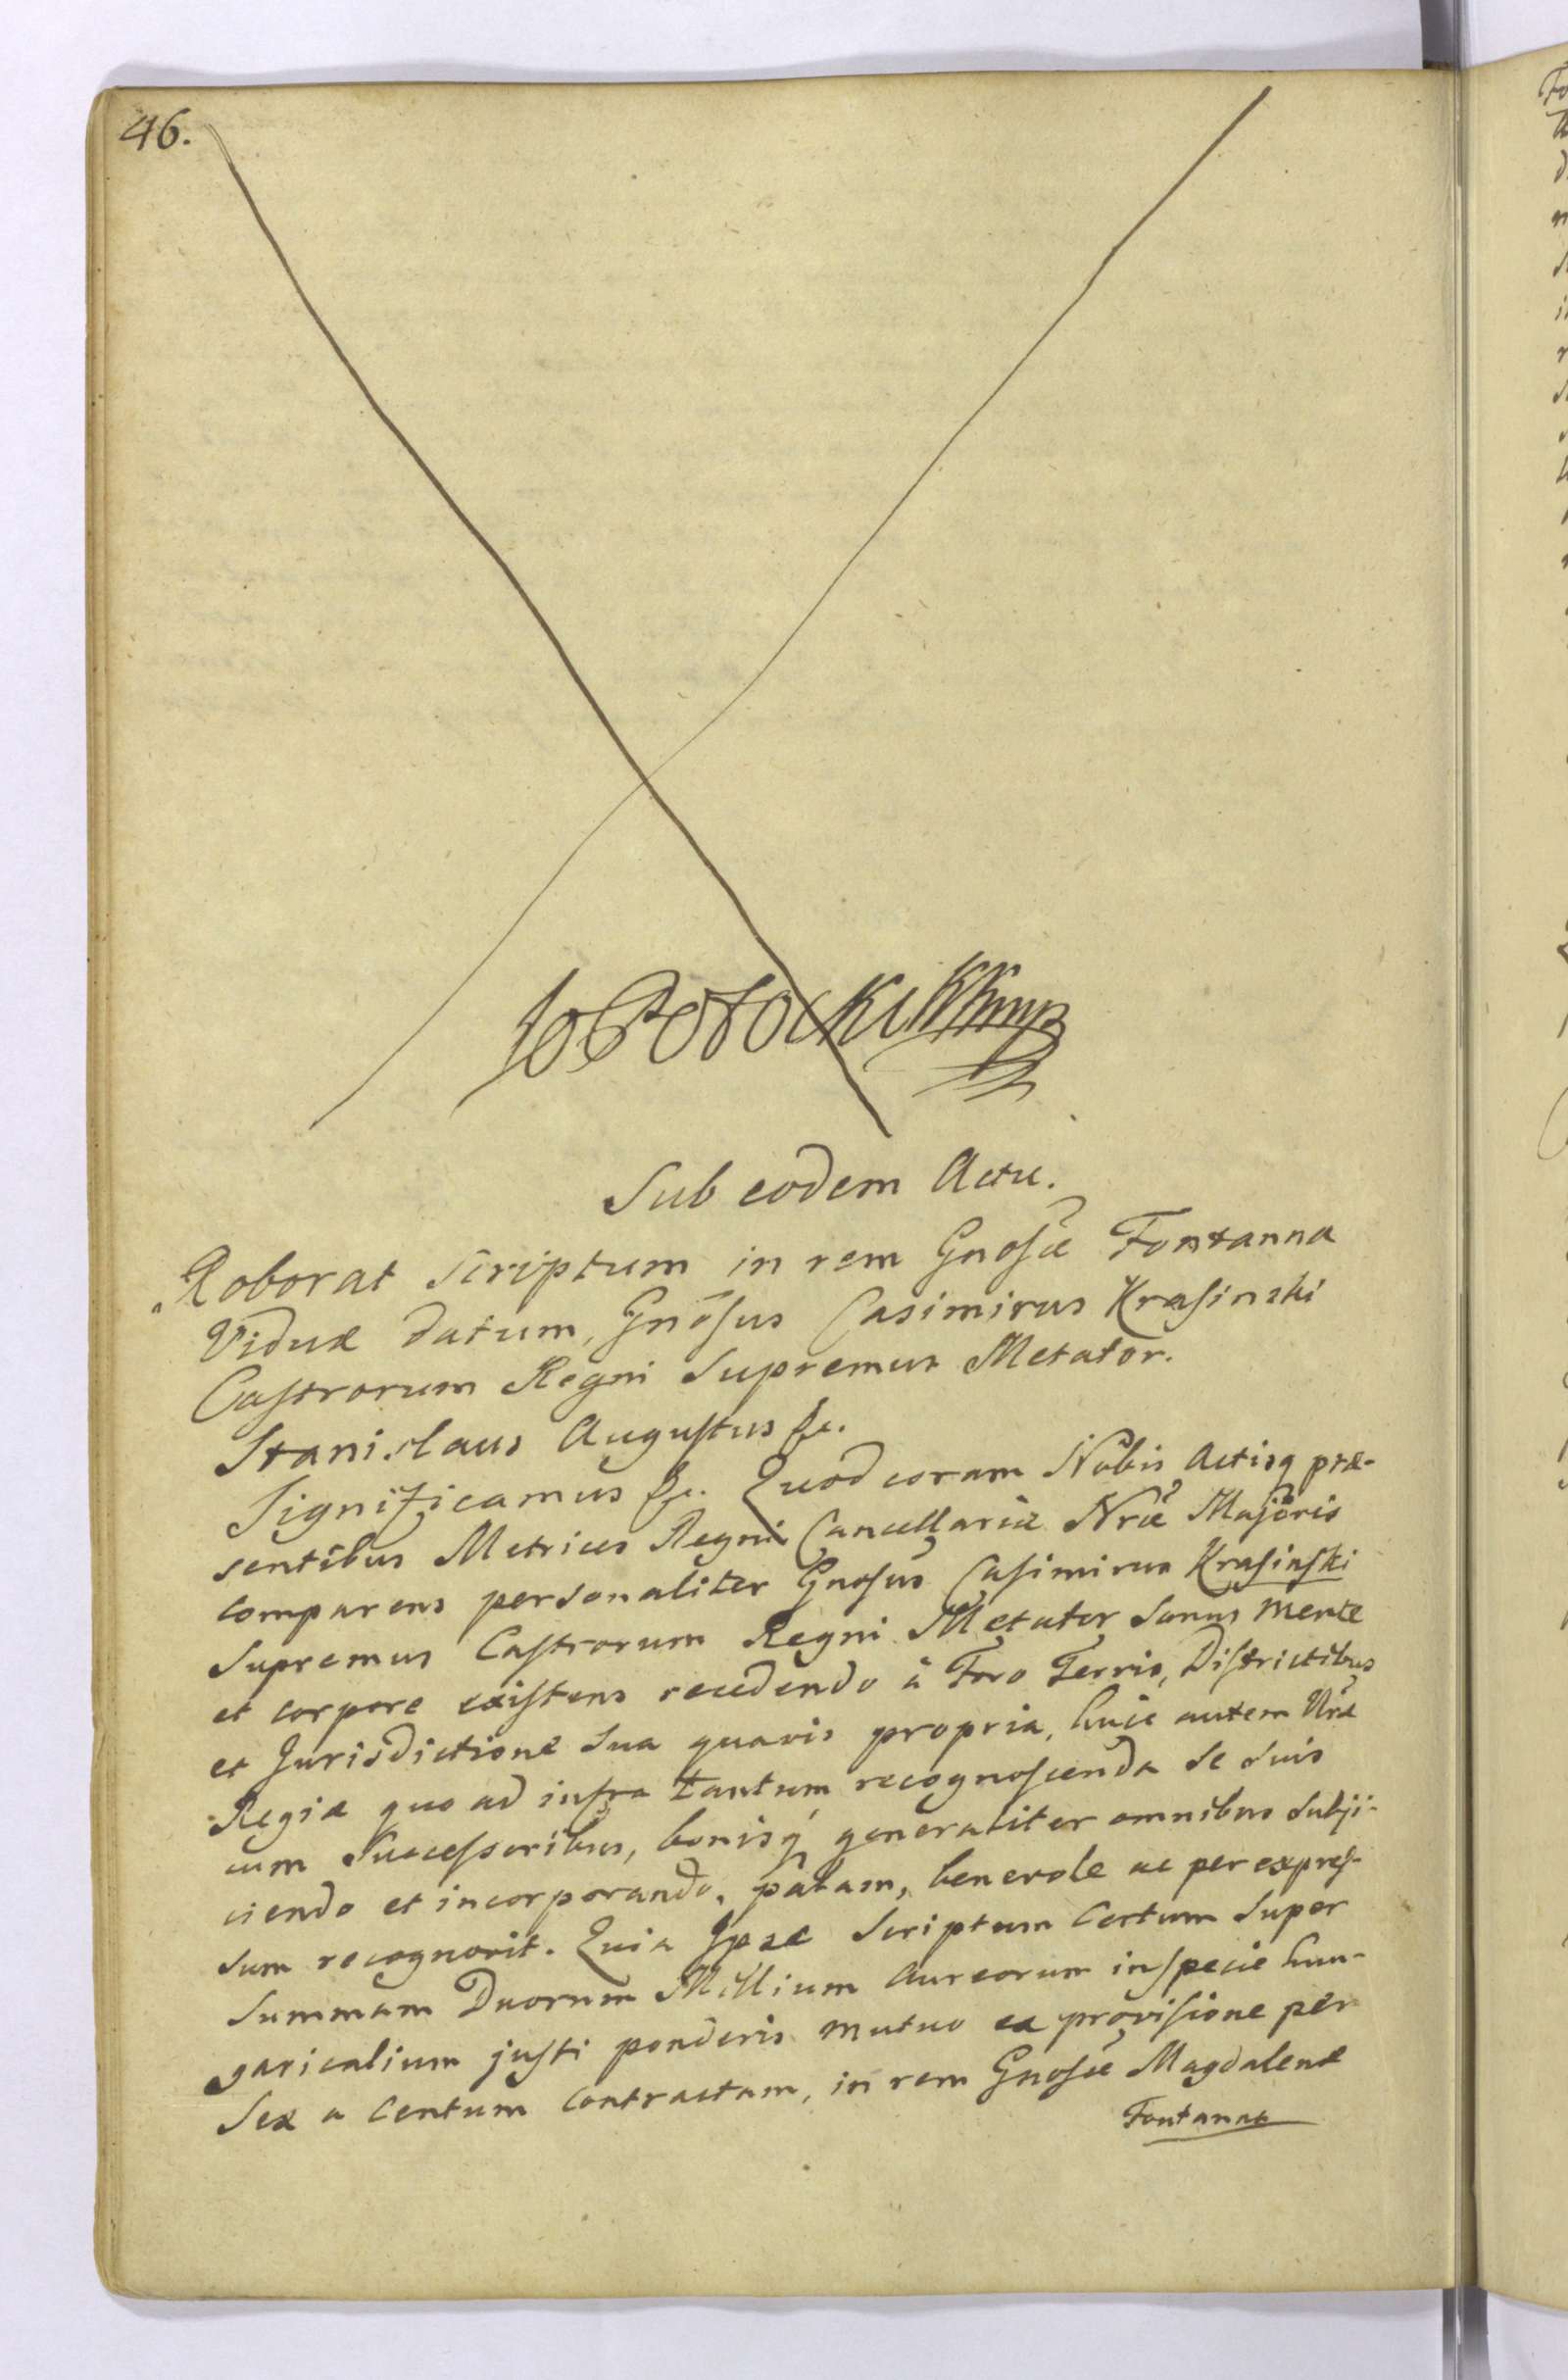 46.
Potocki
Sub eodem Actu.
Roborat Scriptum in rem Gnosæ Fontanna
Viduæ datum, Gnosus Casimirus Krasinski
Castrorum Regni Supremus Metator.
Stanislaus Augustus &c.
Significamus &c. Quod coram Nobis Actisq præ-
sentibus Metrices Regni Cancellariæ Nræ Majoris
comparens personaliter Gnosus Casimirus Krasinski
Supremus Castrorum Regni Metator Sanus mente
et corpore existens recedendo à Foro Terris, Districtibus
et Jurisdictione Sua quavis propria, huic autem Nræ
Regiæ quo ad infra tantum recognoscenda Se Suis
cum Successoribus, bonisq generaliter omnibus Subji-
ciendo et incorporando, palam, benevole ac per expres-
sum recognovit. Quia Ipse Scriptum Certum Super
Summam Duorum Millium Aureorum in specie hun-
garicalium justi ponderis mutuo ea provisione per
Sex a Centum Contractam, in rem Gnosæ Magdalenæ
Fontanna